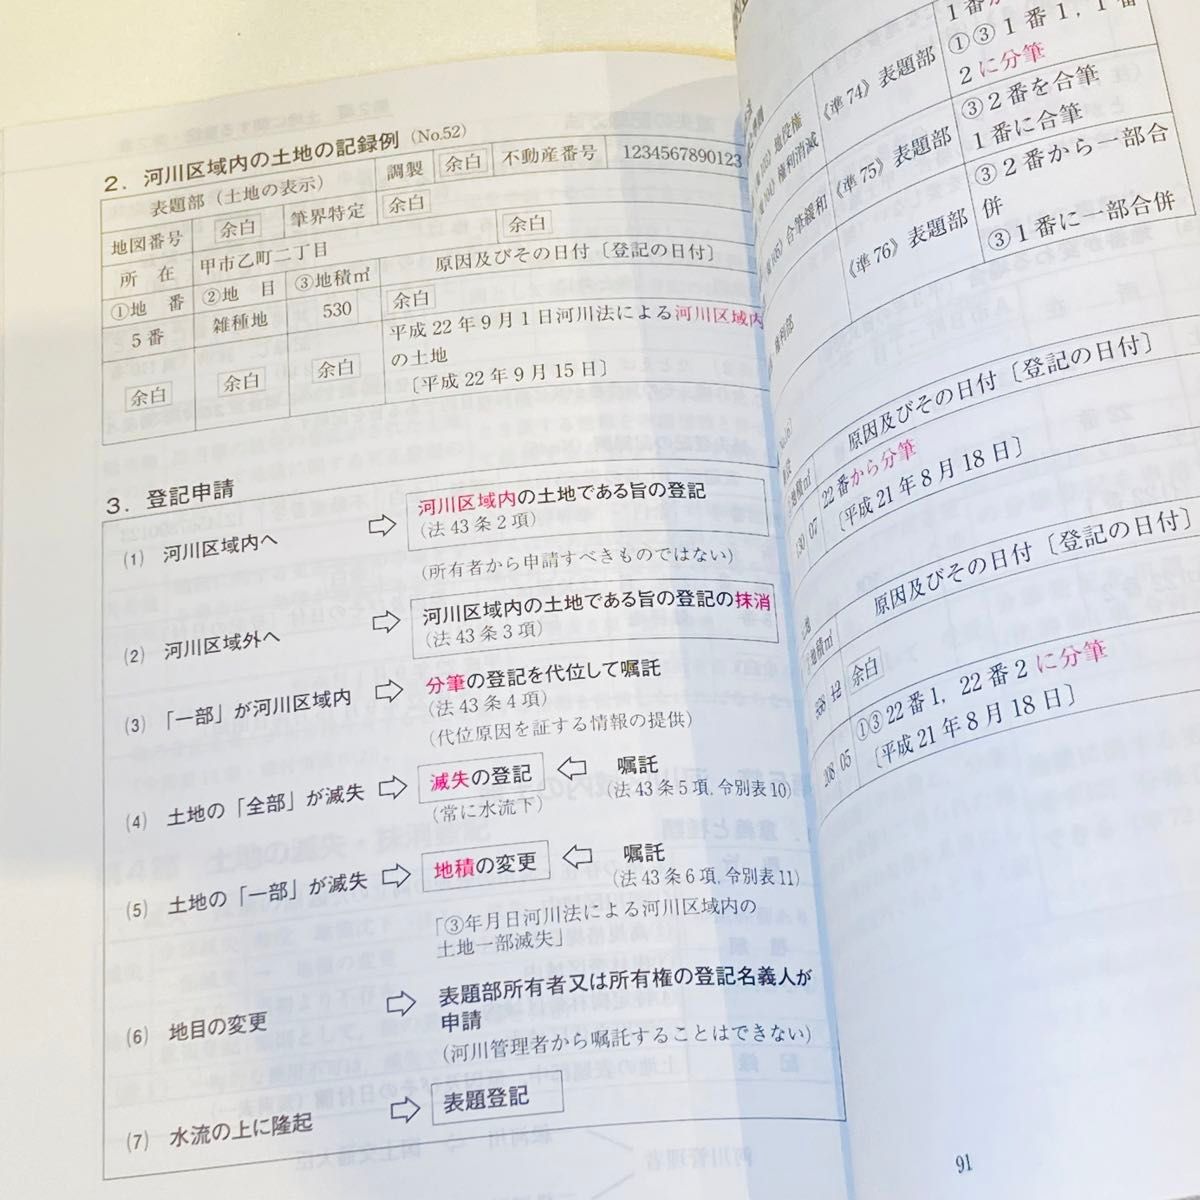 2．河川区域内の土地の記録例（No.52）
表題部（土地の表示） 調製 余白 不動産番号 1234567890123
地図番号 余白 筆界特定 余白
所　在 甲市乙町二丁目 余白
①地　番 ②地　目 ③地積㎡ 原因及びその日付〔登記の日付〕
5番 雑種地 530 余白
余白 余白 余白 平成22年9月1日河川法による河川区域内
の土地
〔平成22年9月15日〕
3．登記申請
(1) 河川区域内へ ⇨ 河川区域内の土地である旨の登記
（法43条2項）
（所有者から申請すべきものではない）
(2) 河川区域外へ ⇨ 河川区域内の土地である旨の登記の抹消
（法43条3項）
(3) 「一部」が河川区域内 ⇨ 分筆の登記を代位して嘱託
（法43条4項）
（代位原因を証する情報の提供）
(4) 土地の「全部」が滅失 ⇨ 滅失の登記 ⇦ 嘱託
（常に水流下） （法43条5項，令別表10）
(5) 土地の「一部」が滅失 ⇨ 地積の変更 ⇦ 嘱託
（法43条6項，令別表11）
「③年月日河川法による河川区域内の
土地一部滅失」
(6) 地目の変更 ⇨ 表題部所有者又は所有権の登記名義人が
申請
（河川管理者から嘱託することはできない）
(7) 水流の上に隆起 ⇨ 表題登記
地役権
権利消滅
合筆緩和
権利部
《準74》表題部
①③1番1，1番
2に分筆
《準75》表題部
③2番を合筆
1番に合筆
《準76》表題部
③2番から一部合
併
③1番に一部合併
地積㎡ 原因及びその日付〔登記の日付〕
07 22番から分筆
〔平成21年8月18日〕
地積㎡ 原因及びその日付〔登記の日付〕
余白
208 05 ①③22番1，22番2に分筆
〔平成21年8月18日〕
91